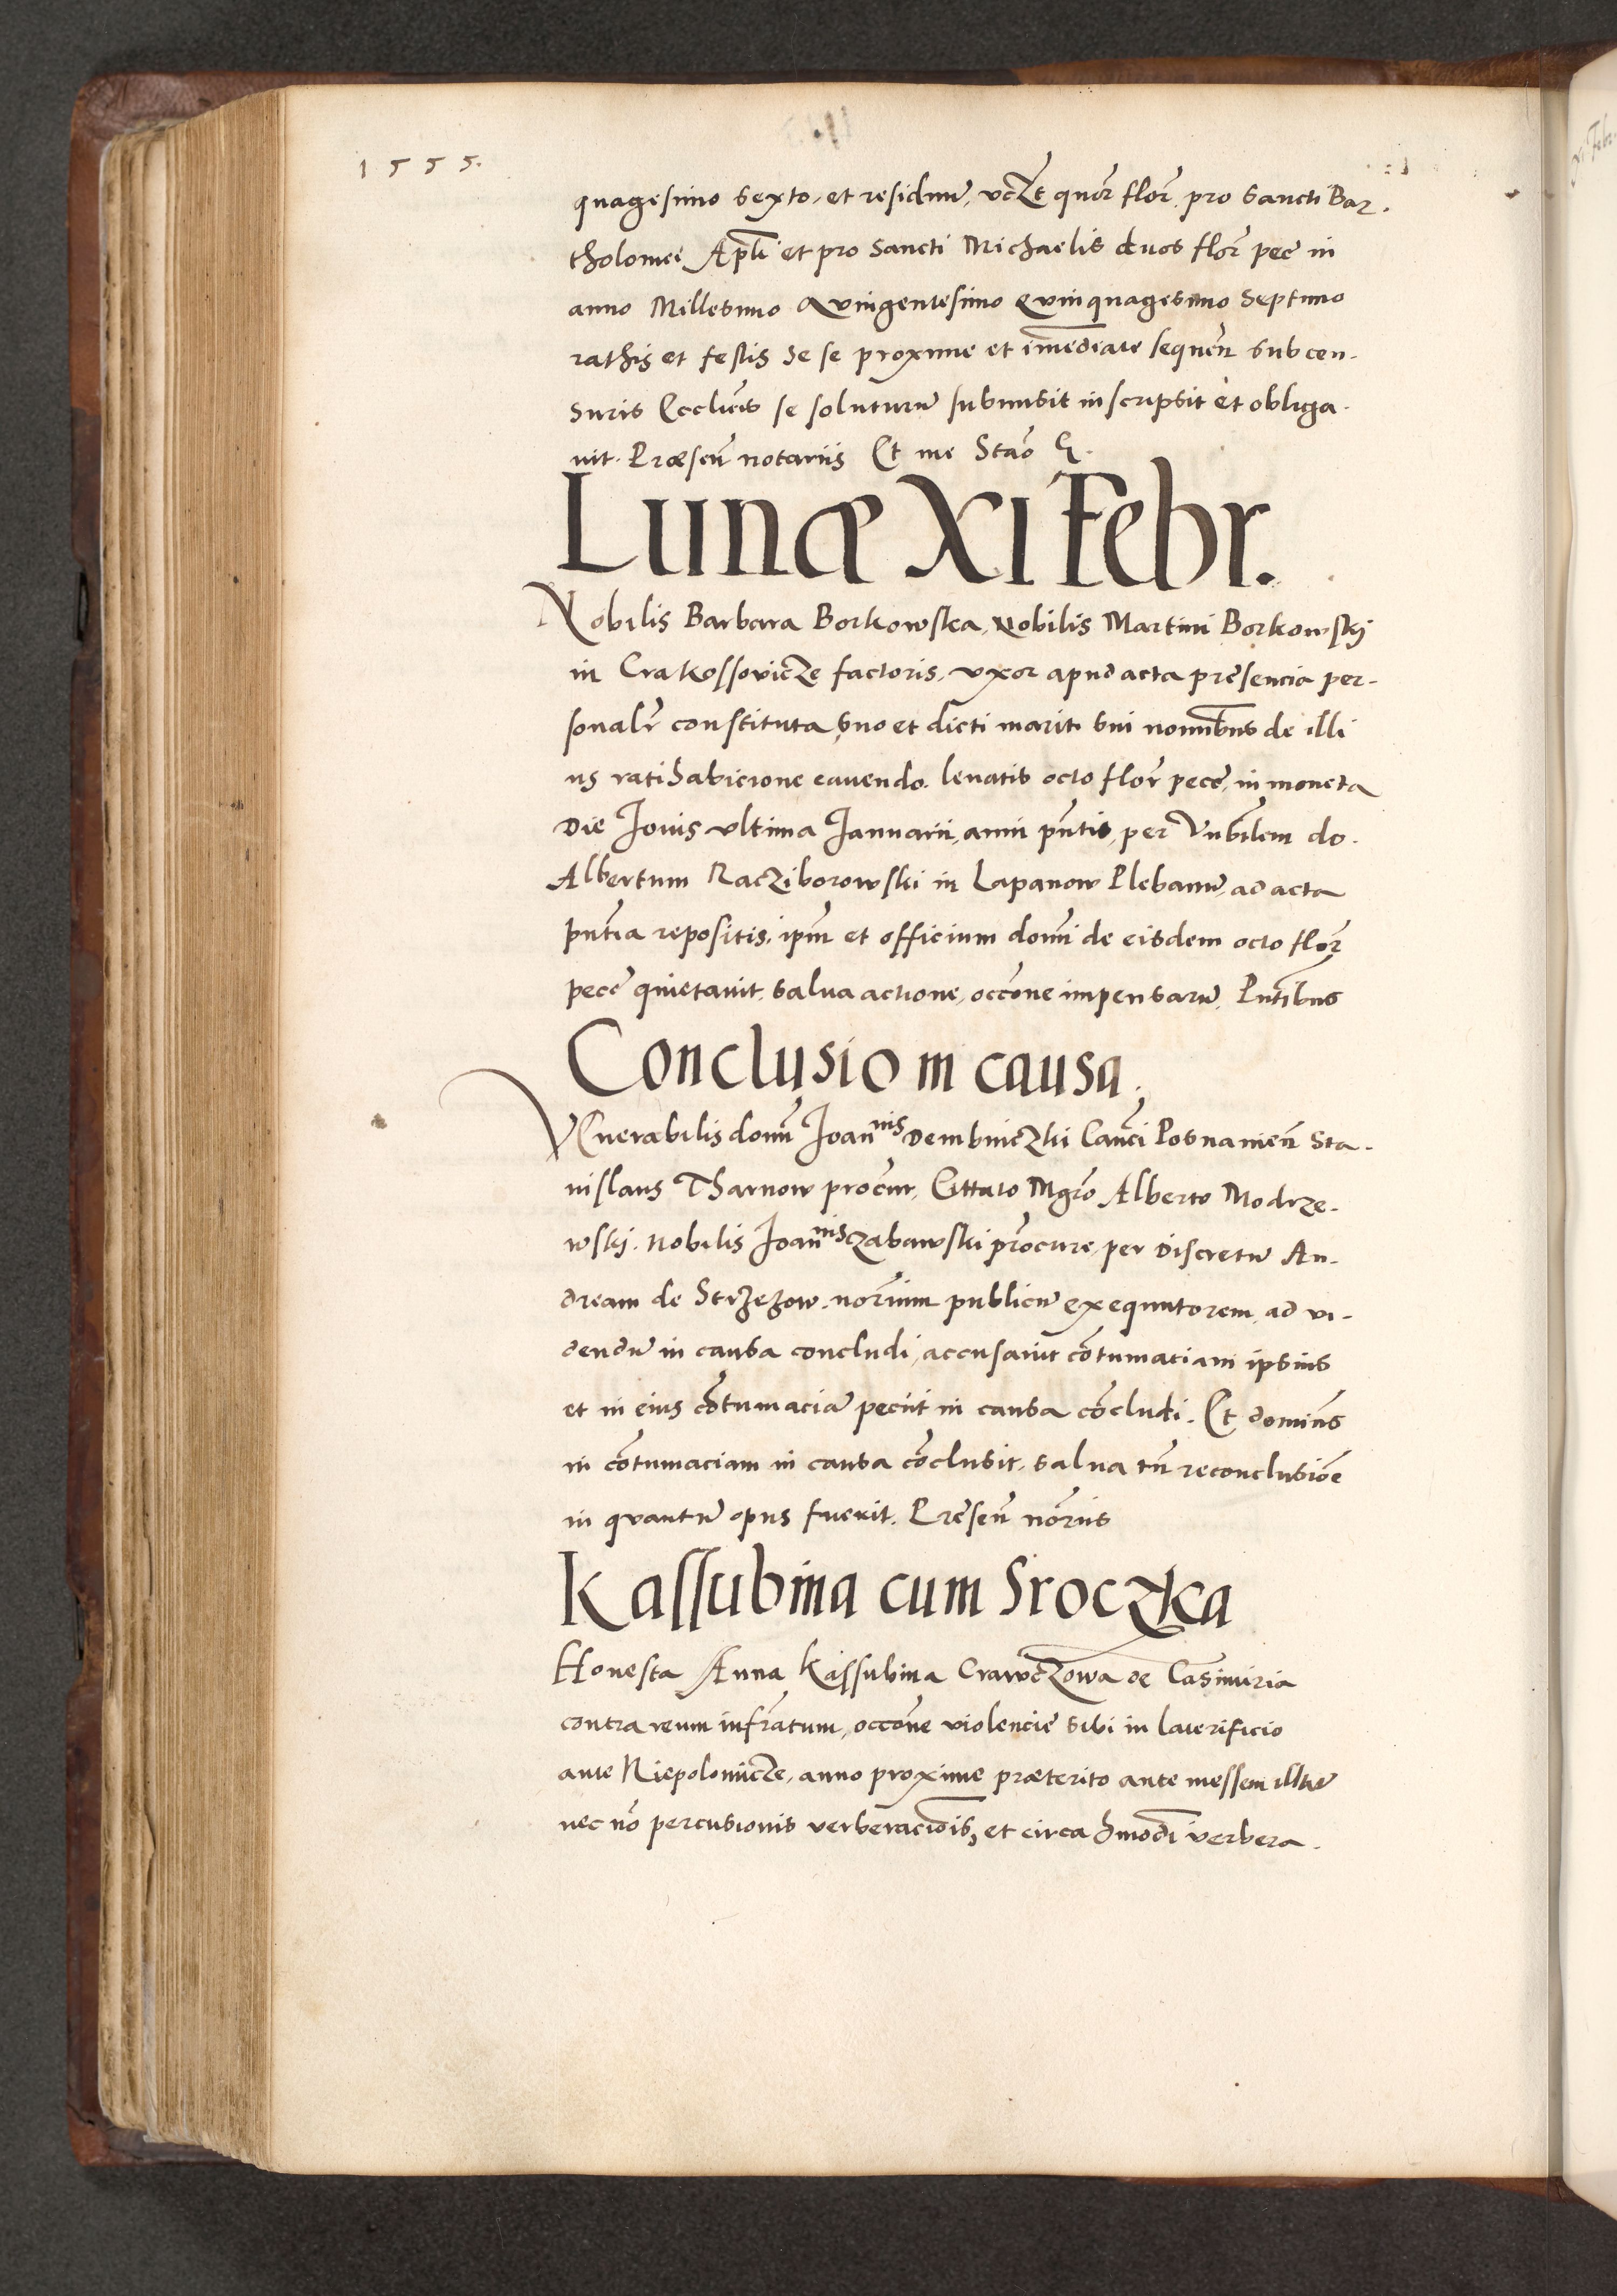 1555.
quagesimo sexto, et residuũ, vcZt quor̃ flor̃. pro Sancti Bar-
tholomei Apl̃i et pro Sancti Michaelis duos flor̃ pec̃ in
anno Millesimo Qvingentesimo Qvinquagesimo Septimo
rathis et festis de se proxime et im̃ediate sequeñ sub cen-
suris Eccl̃icis se soluturũ submisit inscripsit et obliga-
uit. Præseñ notariis Et me Stãо
Lunæ XI Febr.
Nobilis Barbara Borkowska, Nobilis Martini Borkowskÿ
in CrakossovicZe factoris, vxor apud acta præsencia per-
sonalr̃ constituta, suo et dicti mariti sui nomĩbus de illi
us ratihabicione cauendo. leuatis octo flor̃ pecẽ, in moneta
Die Jouis vltima Januarii, anni pñtis, per Vñbilem do.
Albertum RacZiborowski in Lapanow Plebanũ, ad acta
pñtia repositis, ipm̃ et officium domĩ de eisdem octo flor̃
pecẽ quietauit, salua actione, occõne impensarũ. Pñtibus
Conclusio in causa.
VEnerabilis domĩ Joannis DembnicZki Cañci Posnanieñ Sta-
nislaus Tharnow procur̃, Cittato Mgr̃o Alberto Modrze-
wskÿ. Nobilis Joannis Czabawski procur̃e, per Discretũ An-
dream de Strzezow, nor̃ium publicũ exequutorem, ad vi-
dendũ in causa concludi, accusauit cõtumatiam ipsius
et in eius cõtumaciã peciit in causa cõcludi. Et dominũs
in cõtumaciam in causa cõclusit, salua tñ reconclusiõe
in quantũ opus fuerit. Præseñ nor̃iis
Kassubina cum SroczKa
Honesta Anna Kassubina CrawcZowa de Casimiria
contra reum infrãtum, occõne violencie sibi in laterificio
ante NiepolomicZe, anno proxime præterito ante messem illatæ
nec nõ percusionis verberaciõis, et circa hmõdi verbera-